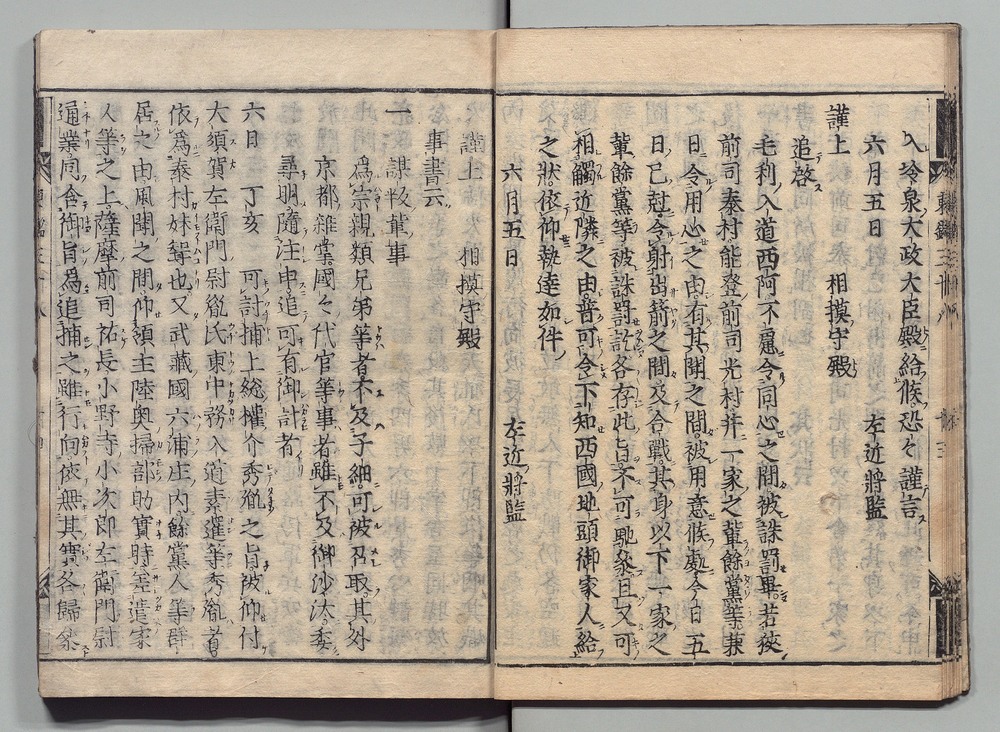 入冷泉大政大臣殿給候恐々謹言
六月五日 左近將監
謹上 相摸守殿
追啓
毛利入道西阿不慮令同心之間被誅罰畢若狹
前司泰村能登前司光村幷一家之輩餘黨等兼
日令用心之由有其聞之間被用意候處今日五
日巳尅令射出箭之間及合戰其身以下一家之
輩餘黨等被誅罰訖各存此旨不可馳參且又可
相觸近隣之由普可令下知西國地頭御家人給
之狀依仰執達如件
六月五日 左近將監
謹上 相摸守殿
事書云
一 謀叛輩事
爲宗親類兄弟等者不及子細可被召取其外
京都雜掌國々代官等事者雖不及御沙汰委
尋明隨注申追可有御計者
六日 丁亥 可討捕上総權介秀胤之旨被仰付
大須賀左衞門尉胤氏東中務入道素暹等秀胤者
依爲泰村妹聟也又武藏國六浦庄內餘黨人等群
居之由風聞之間仰領主陸奥掃部助實時差遣家
人等之上薩摩前司祐長小野寺小次郎左衞門尉
通業同含御旨爲追捕之雖行向依無其實各歸參